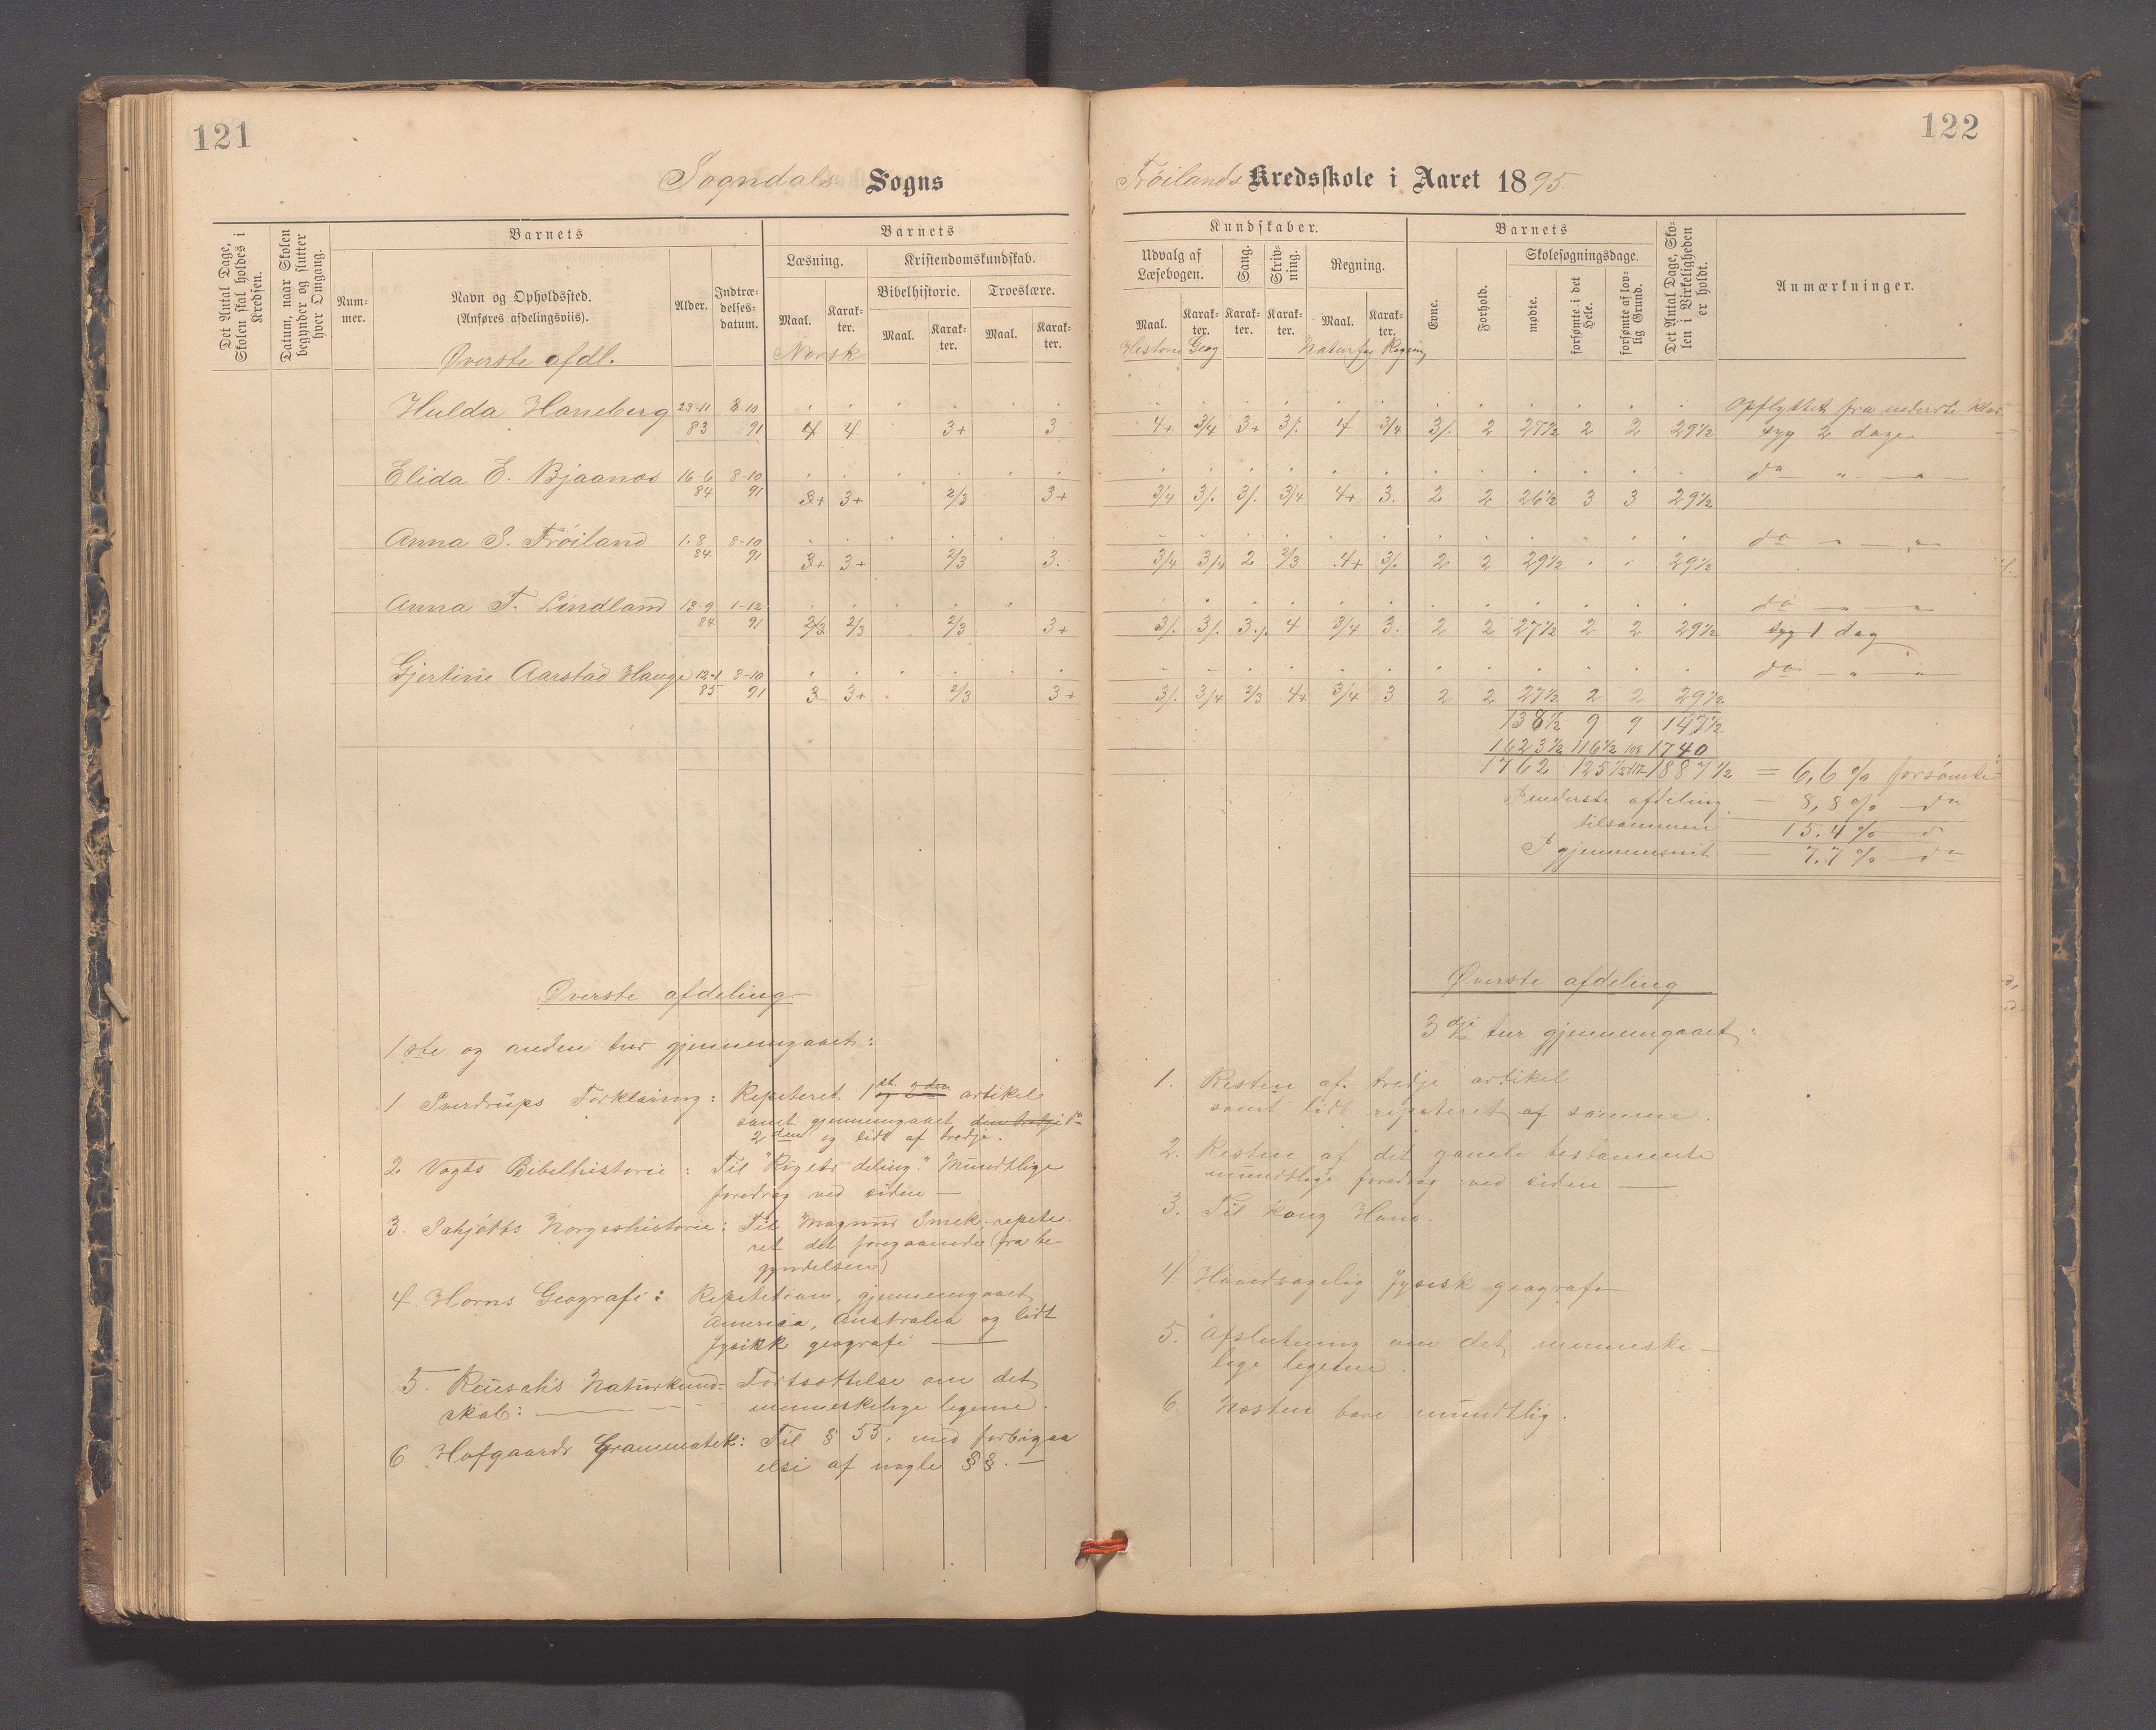 121
Sogndals Sogns
Det Antal Dage, Skolen skal holdes i Kredsen.
Datum, naar Skolen begynder og slutter hver Omgang.
Barnets
Num-mer.
Navn og Opholdssted.
(Anføres afdelingsviis).
Alder.
Indtræ-delses-datum.
Barnets
Læsning.
Kristendomskundskab.
Bibelhistorie.
Troeslære.
Maal.
Karak-ter.
Maal.
Karak-ter.
Maal.
Karak-ter.
Øverste afdl.
Norsk
Hulda Haneberg 23-11 83 8-10 91 4 4 3+ 3
Elida E. Bjaanes 16-6 84 8-10 91 3+ 3+ 2/3 3+
Anna S. Frøiland 1-8 84 8-10 91 3+ 3+ 2/3 3.
Anna T. Lindland 13-9 84 1-12 91 2/3 2/3 2/3 3+
Gjertine Aarstad Hauge 12-1 85 8-10 91 3 3+ 2/3 3+
Øverste afdeling
1ste og anden tur gjennemgaaet:
1 Sverdrups Forklaring: Repeteret 1st og 2den artikel
samt gjennemgaaet den tredje
2den og lidt af tredje.
2 Vogts Bibelhistorie: Til "Rigets deling." Mundtlige
foredrag ved siden —
3. Schjøtts Norgeshistorie: Til Magnus Smek; repete-
ret det foregaaende (fra be-
gyndelsen)
4 Horns Geografi: Repetition, gjennemgaaet
Amerika, Australia og lidt
fysisk geografi —
5. Reusch's Naturkund- Fortsættelse om det
skab: — menneskelige legeme.
6 Hofgaards Grammatik: Til § 55, med forbigaa
else af nogle §§. —
122
Frøilands Kredsskole i Aaret 1895.
Kundskaber.
Udvalg af Læsebogen.
Sang.
Skriv-ning.
Regning.
Maal.
Karak-ter.
Karak-ter.
Karak-ter.
Maal.
Karak-ter.
Barnets
Evne.
Forhold.
Skolesøgningsdage.
mødte.
forsømte i det Hele.
forsømte af lov-lig Grund.
Det Antal Dage, Sko-len i Virkeligheden er holdt.
Anmærkninger.
Historie Geog Naturfag Regning
Opflyttet fra nederste klas
4+ 3/4 3+ 3/. 4 3/4 3/. 2 27½ 2 2 29½ syg 2 dage
do " "
3/4 3/. 3/. 3/4 4+ 3. 2 2 26½ 3 3 29½
do " "
3/4 3/4 2 2/3 4+ 3/. 2 2 29½ . . 29½
do — "
3/. 3/. 3./. 4 3/4 3. 2 2 27½ 2 2 29½ syg 1 dag
do " "
3/. 3/4 2/3 4+ 3/4 3 2 2 27½ 2 2 29½
138½ 9 9 147½
1623½ 116½ 108 1740
1762 125½ 117 1887½ = 6,6 % forsømte
I nederste afdeling — 8,8 % — do
tilsammen 15.4 % — d
I gjennemsnit — 7,7 % — do
Øverste afdeling
3dje tur gjennemgaaet:
1. Resten af tredje artikel
samt lidt repeteret af samme.
2. Resten af det gamle testamente
mundtlige foredrag ved siden —
3. Til kong Hans.
4 Hovedsagelig fysisk geografi
5. Afslutning om det menneske-
lige legeme.
6. Næsten bare mundtlig.